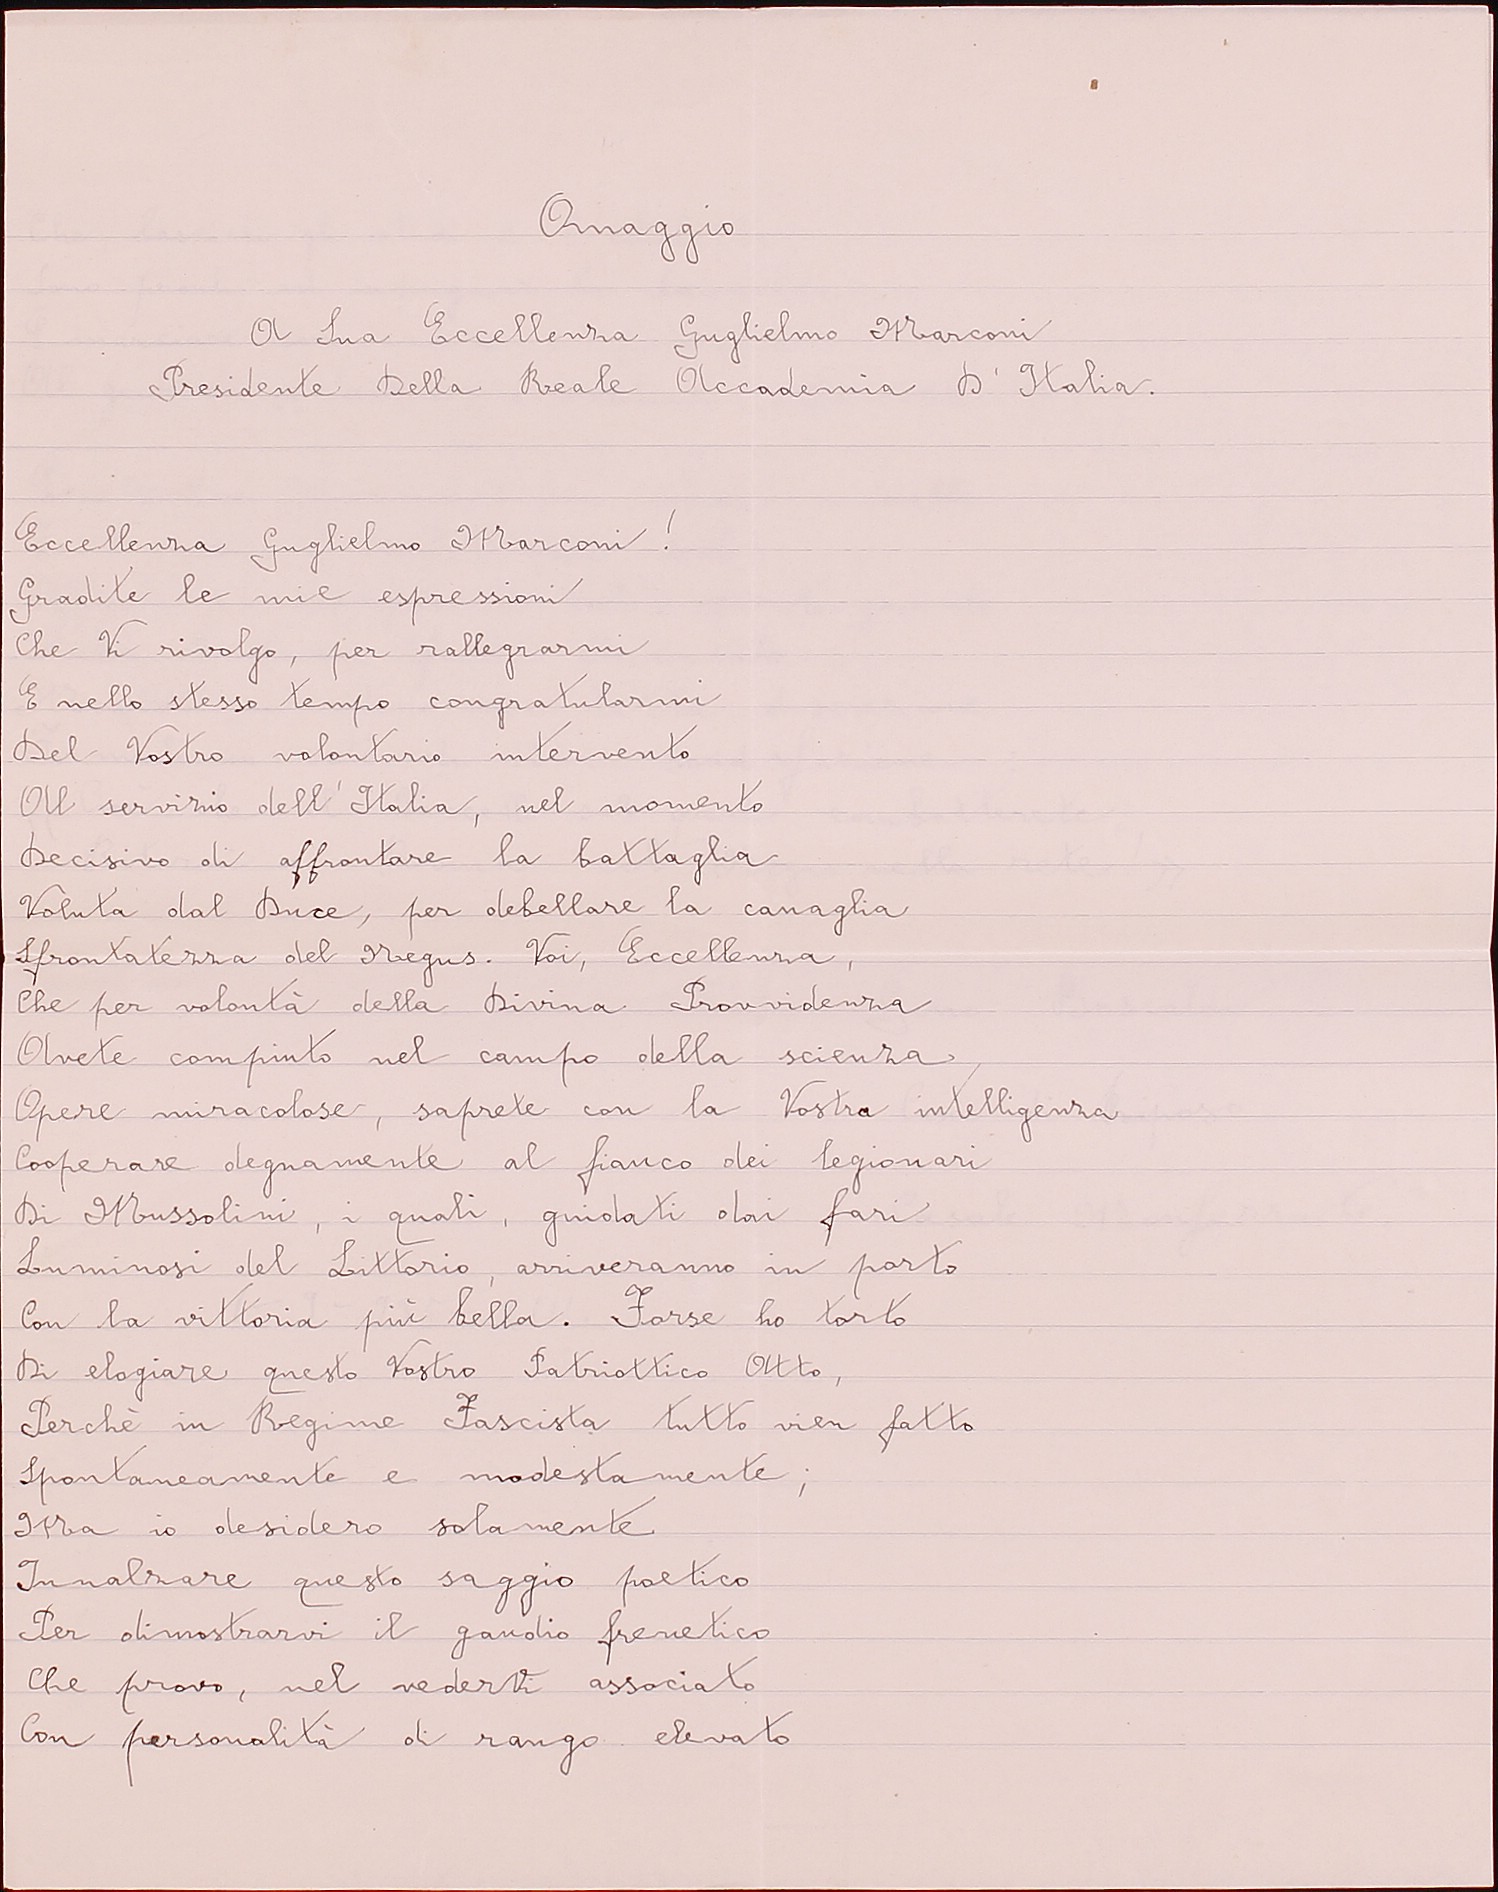 Omaggio
A Sua Eccellenza Guglielmo Marconi
Presidente Della Reale Accademia D'Italia.
Eccellenza Guglielmo Marconi!
Gradite le mie espressioni
Che Vi rivolgo, per rallegrarmi
E nello stesso tempo congratularmi
Del Vostro volontario intervento
Al servizio dell'Italia, nel momento
Decisivo di affrontare la battaglia
Voluta dal Duce, per debellare la canaglia
Sfrontatezza del Negus. Voi, Eccellenza,
Che per volontà della Divina Provvidenza
Avete compiuto nel campo della scienza,
Opere miracolose, saprete con la Vostra intelligenza
Cooperare degnamente al fianco dei legionari
Di Mussolini, i quali, guidati dai fari
Luminosi del Littorio, arriveranno in porto
Con la vittoria più bella. Forse ho torto
Di elogiare questo Vostro Patriottico Atto,
Perchè in Regime Fascista tutto vien fatto
Spontaneamente e modestamente;
Ma io desidero solamente
Innalzare questo saggio poetico
Per dimostrarvi il gaudio frenetico
Che provo, nel vederVi associato
Con personalità di rango elevato